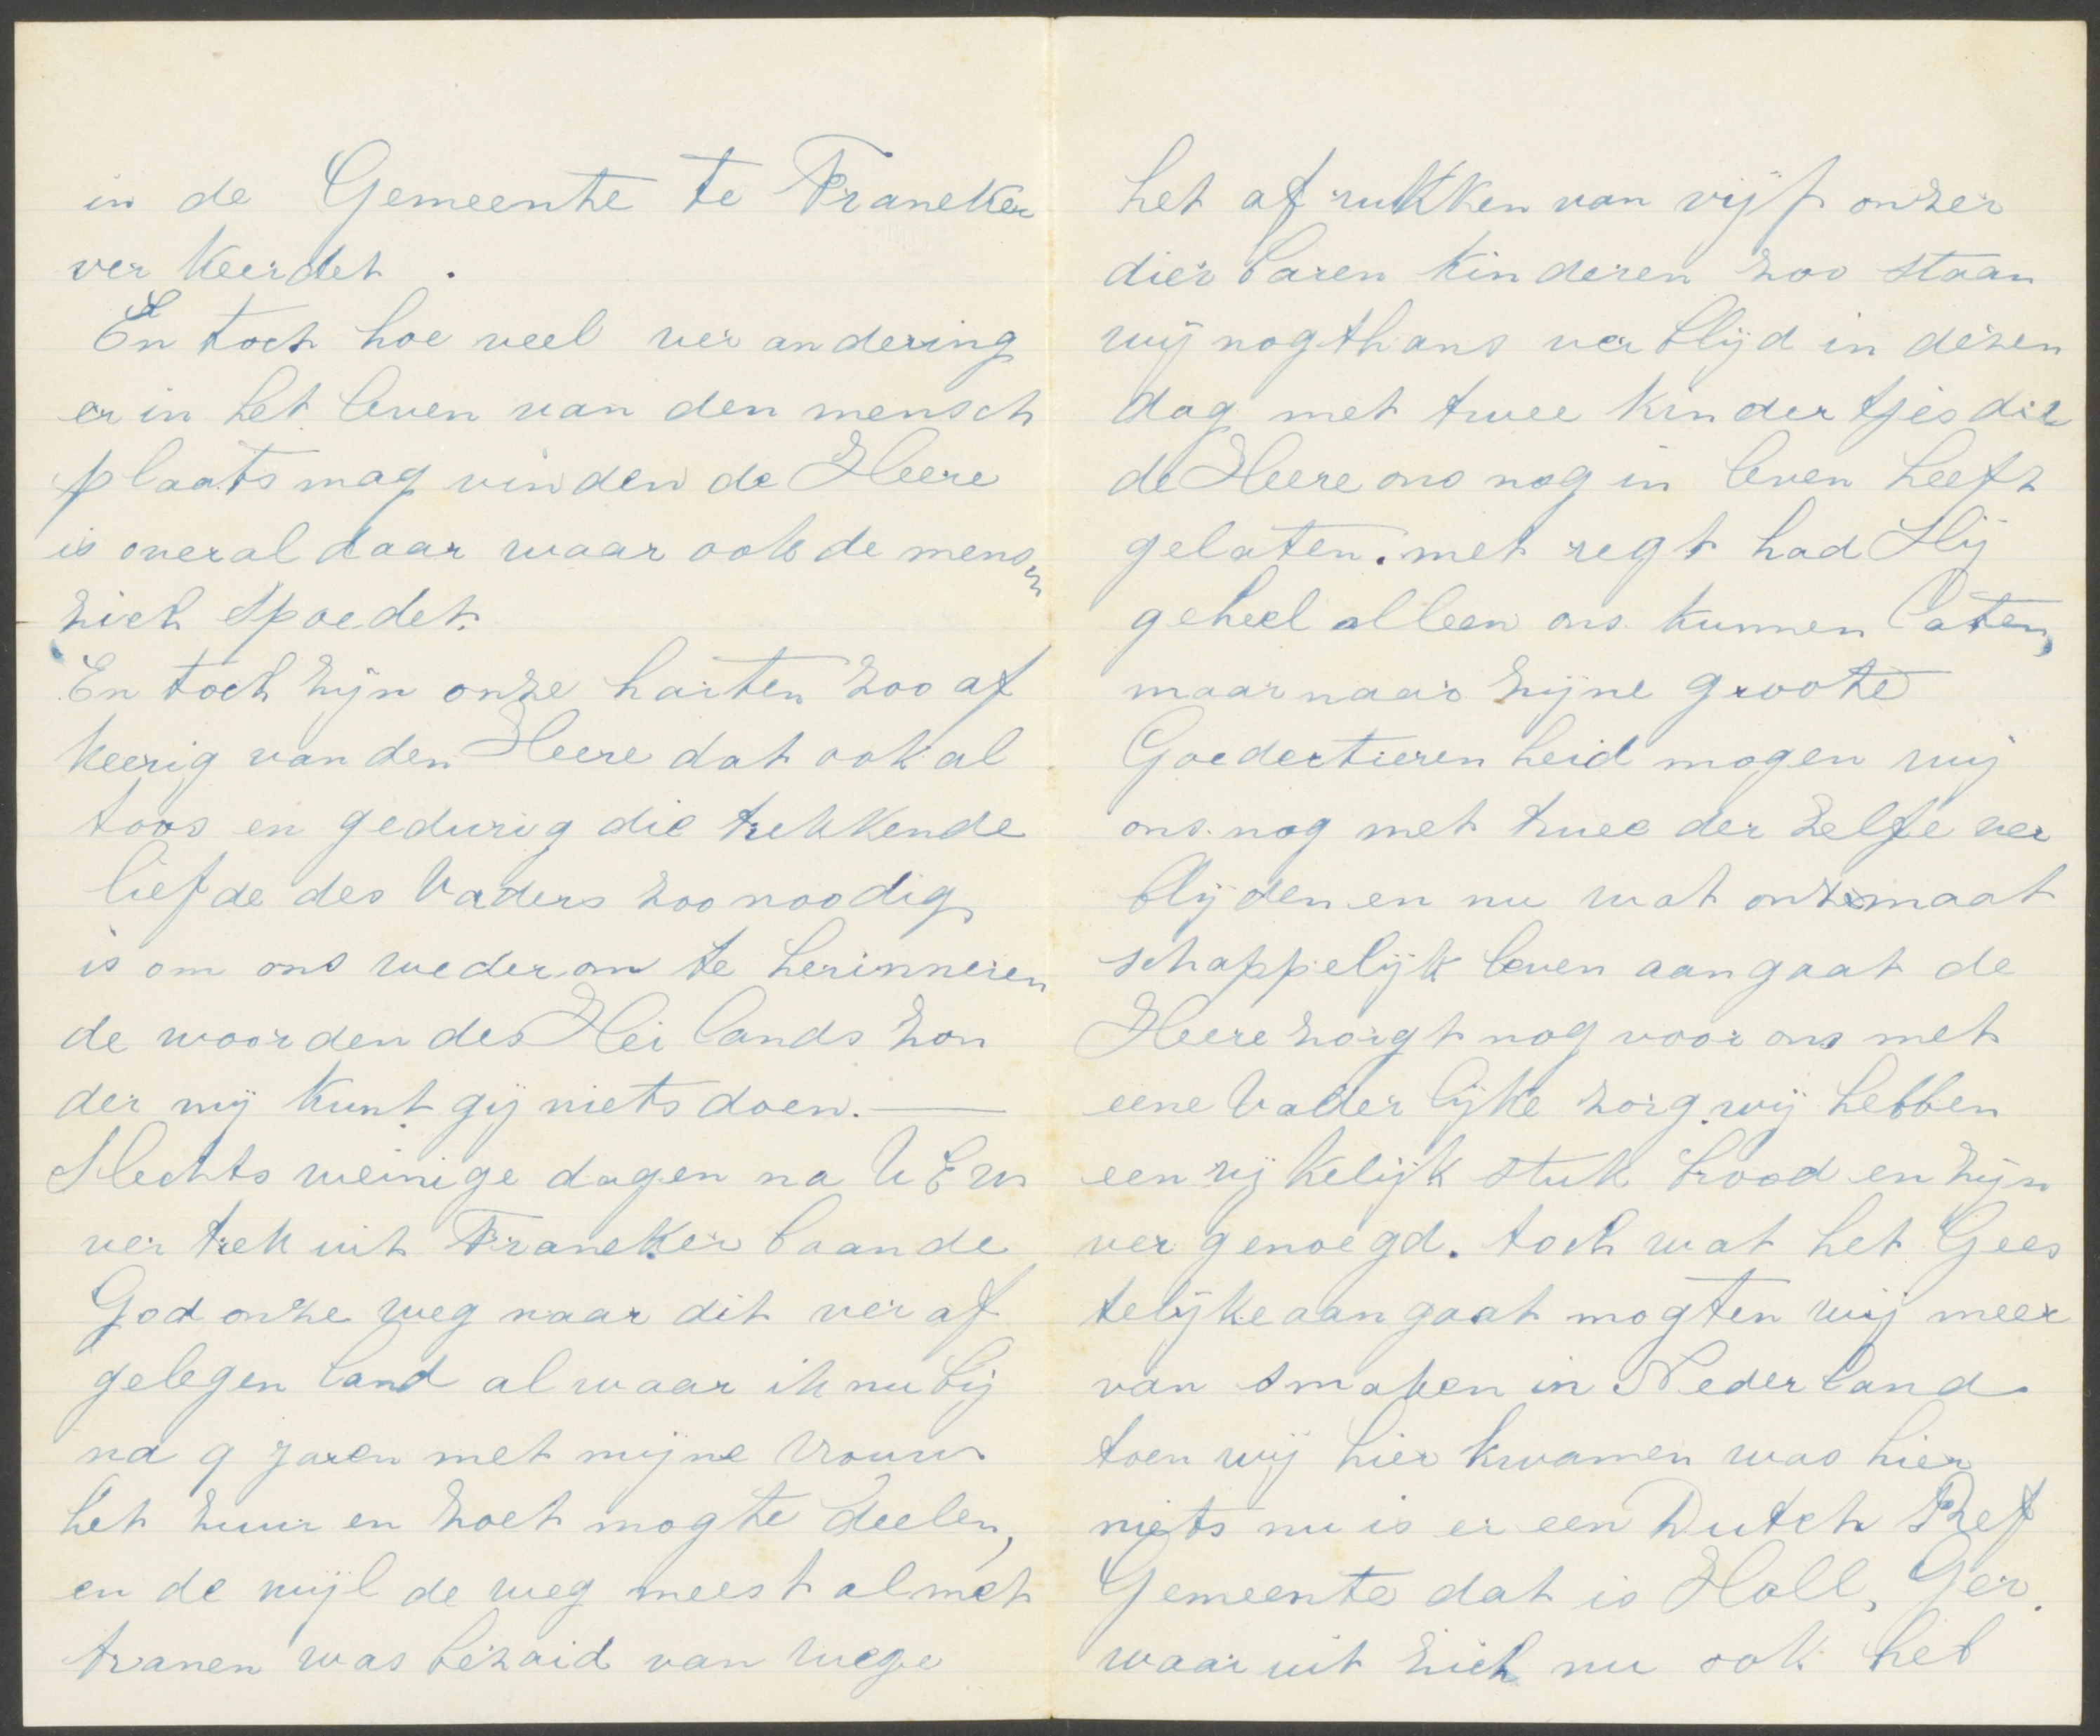 in de Gemeente te Franeker
ver keerdet.
En toch hoe veel ver andering
er in het leven van den mensch
plaats mag vinden de Heere
is overal daar waar ook de mensch
zich spoedet.
En toch zijn onze harten zoo af
keerig van den Heere dat ook al
toos en gedurig die trekkende
liefde des Vaders zoo noodig
is om ons wederom te herinneren
de woorden des Hei lands zon
der mij kunt gij niets doen. —
Slechts weinige dagen na UEw
ver trek uit Franeker baande
God onze weg naar dit ver af
gelegen land al waar ik nu bij
na 9 jaren met mijne Vrouw
het zuur en zoet mogte deelen,
en de wijl de weg meest al met
tranen was bezaid van wege
het af rukken van vijf onzer
dier baren kin deren zoo staan
wij nogthans ver blijd in dezen
dag met twee kin der tjes die
de Heere ons nog in leven heeft
gelaten. met regt had Hij
geheel alleen ons kunnen laten,
maar naar zijne groote
Goedertieren heid mogen wij
ons nog met twee der zelfe ver
blijden en nu wat onze maat
schappelijk leven aan gaat de
Heere zorgt nog voor ons met
eene Vader lijke zorg. wij hebben
een rij kelijk stuk brood en zijn
ver genoegd. toch wat het Gees
telijke aan gaat mogten wij meer
van smaken in Neder land
toen wij hier kwamen was hier
niets nu is er een Dutch Ref
Gemeente dat is Holl, Ger.
waar uit zich nu ook het